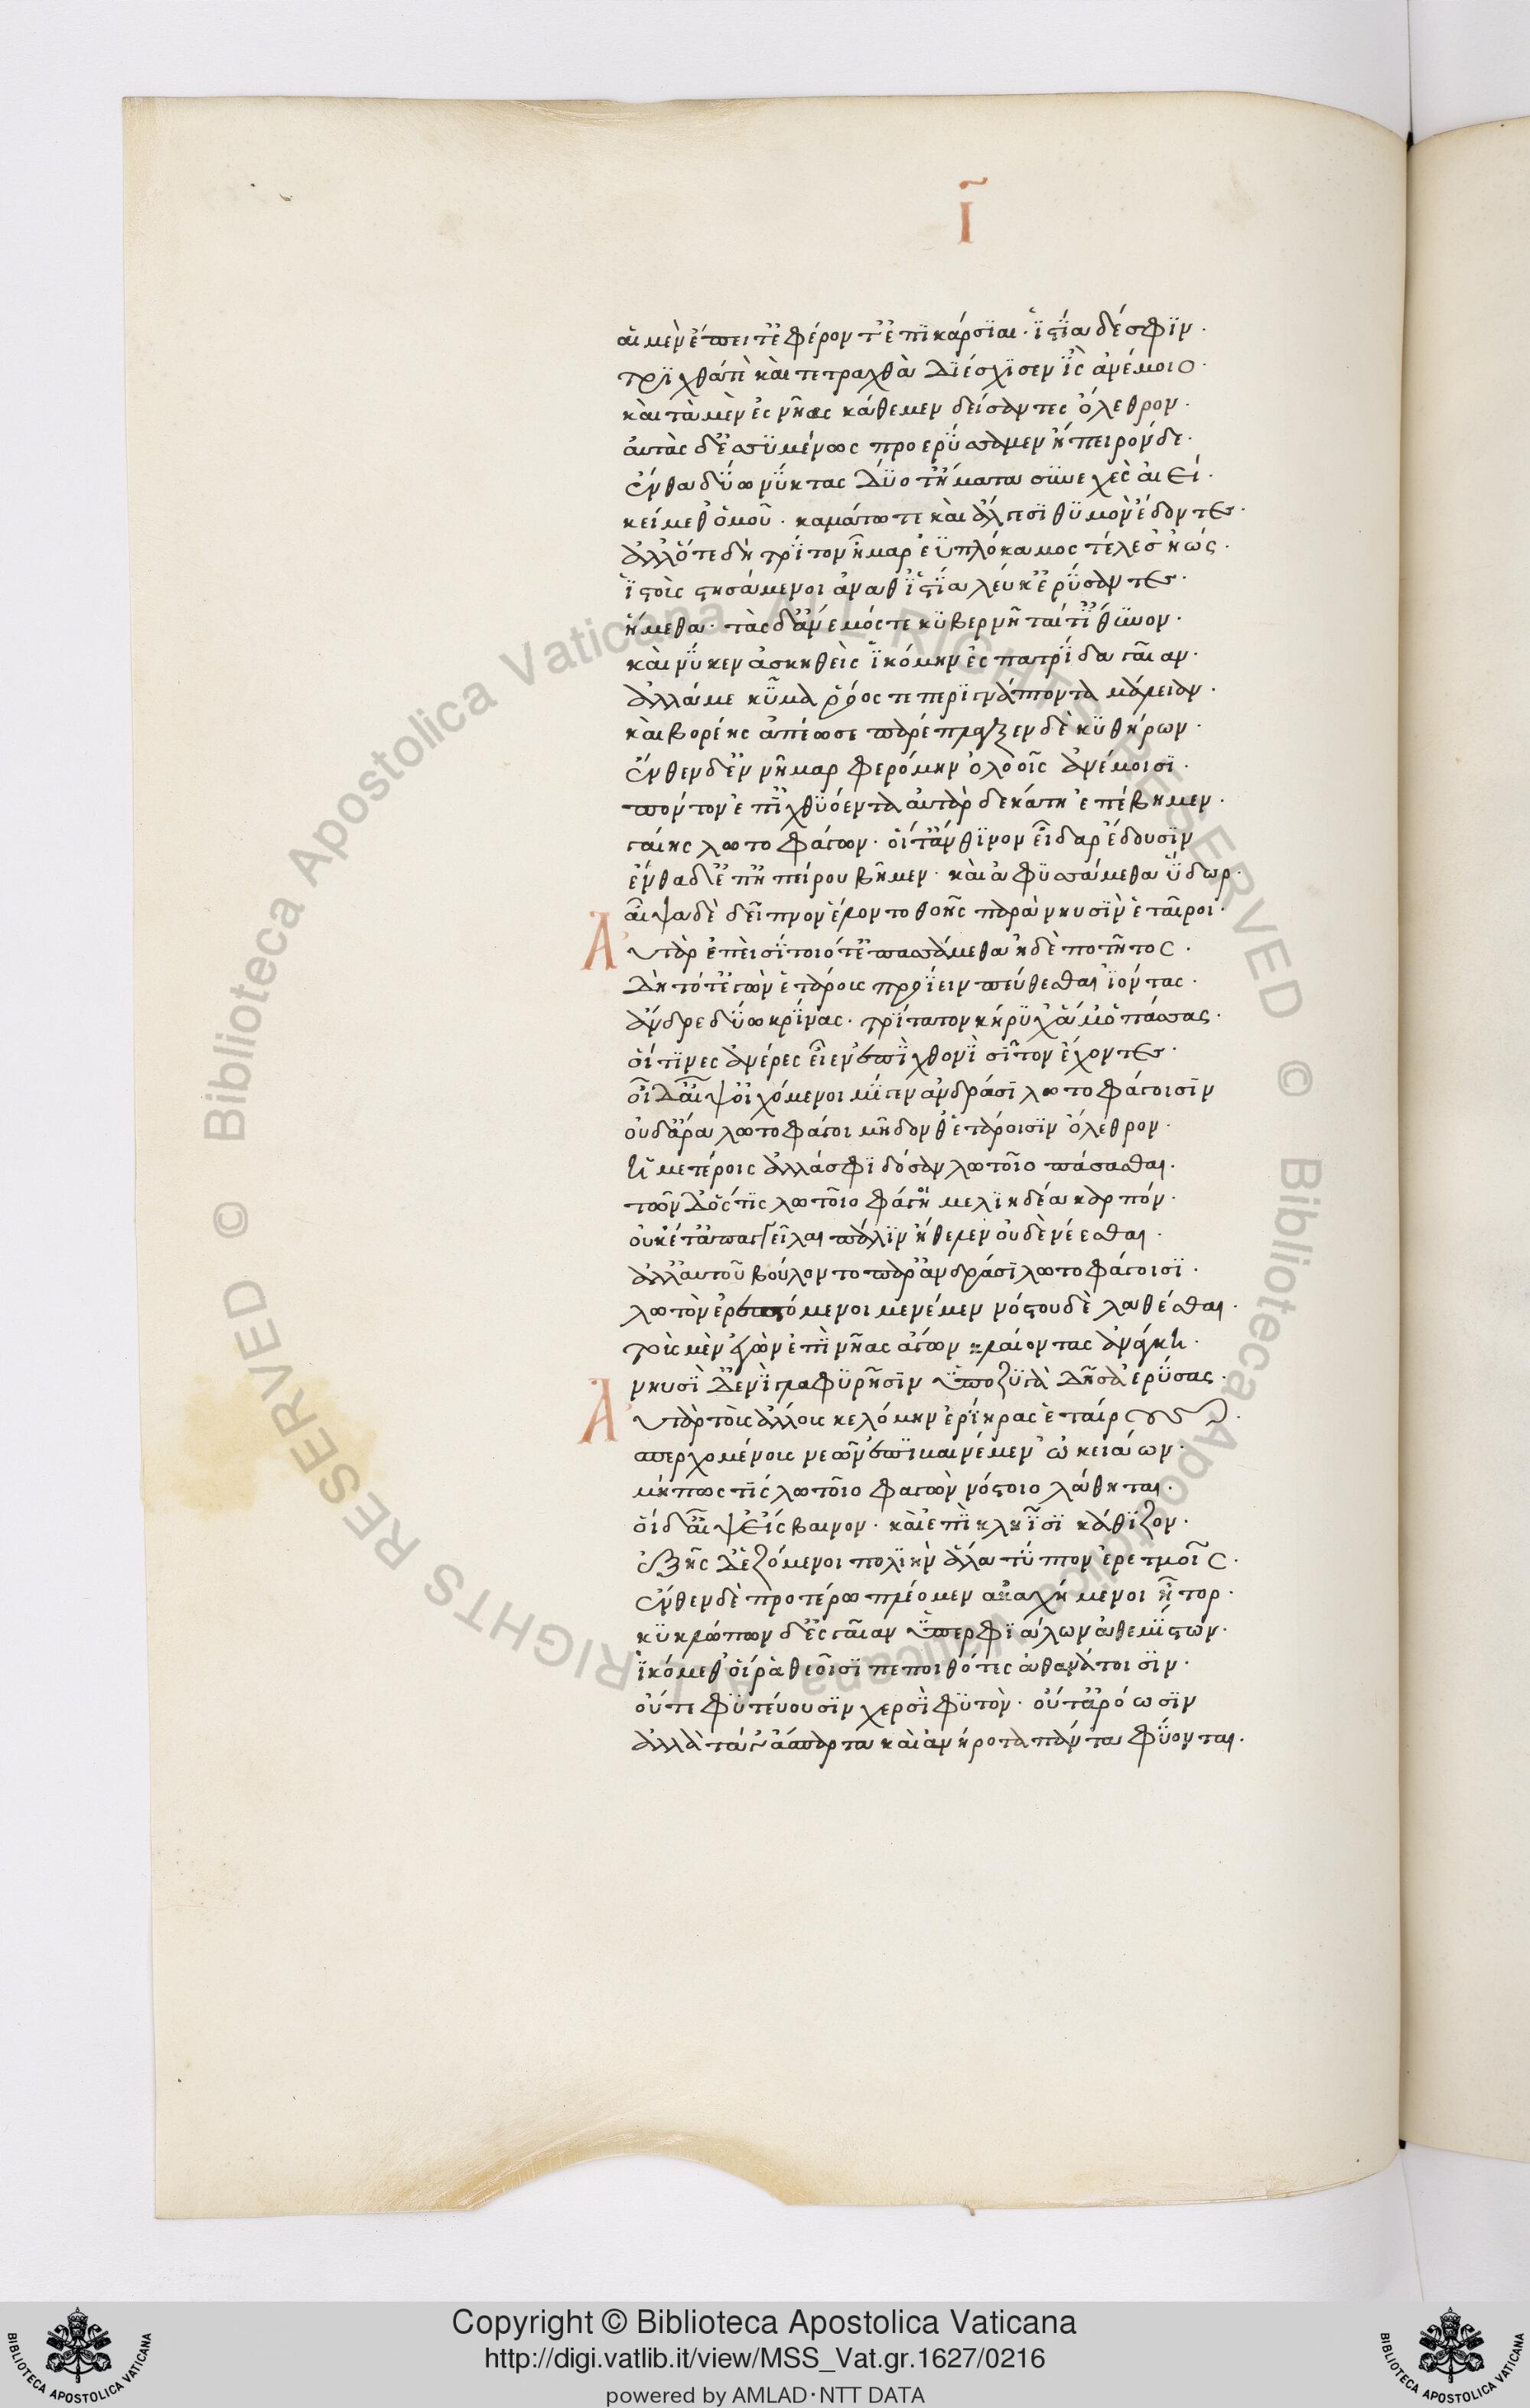 ῑ
αἱ μὲν ἔπειτ' ἐφέροντ' ἐπικάρσιαι· ἱστία δέ σφιν·
τριχθά τε καὶ τετραχθὰ διέσχισεν ἲς ἀνέμοιο·
καὶ τὰ μὲν ἐς νῆας κάθεμεν δείσαντες ὄλεθρον·
αὐτὰς δ' ἐσσυμένως προερύσσαμεν ἤπειρόνδε·
ἔνθα δύω νύκτας δύο τ' ἤματα συνεχὲς αἰεί·
κείμεθ' ὁμοῦ· καμάτω τε καὶ ἄλγεσι θυμὸν ἔδοντες·
ἀλλ' ὅτε δὴ τρίτον ἦμαρ ἐϋπλόκαμος τέλεσ' ἠώς·
ἱστοὺς στησάμενοι ἀνά θ' ἱστία λεύκ' ἐρύσαντες·
ἥμεθα· τὰς δ' ἄνεμός τε κυβερνῆται τ' ἴθυνον·
καὶ νύ κεν ἀσκηθὴς ἱκόμην ἐς πατρίδα γαῖαν·
ἀλλά με κῦμα ῥόος τε περιγνάμπτοντα μάλειαν·
καὶ βορέης ἀπέωσε παρέπλαγξεν δὲ κυθήρων·
ἔνθεν δ' ἐννῆμαρ φερόμην ὀλοοῖς ἀνέμοισι·
πόντον ἐπ' ἰχθυόεντα ἀυτὰρ δεκάτη ἐπέβημεν·
γαίης λωτοφάγων· οἵ τ' ἄνθινον εἶδαρ ἔδουσιν
ἔνθα δ' ἐπ' ἠπείρου βῆμεν· καὶ ἀφυσσάμεθα ὕδωρ·
αἶψα δὲ δεῖπνον ἕλοντο θοῆς παρὰ νηυσὶν ἑταῖροι·
Αὐτὰρ ἐπεὶ σίτοιό τ' ἐπασσάμεθα ἠδὲ ποτῆτος·
δὴ τότ' ἐγὼν ἑτάροις προΐειν πεύθεσθαι ἰόντας·
ἄνδρε δύω κρίνας· τρίτατον κήρυχ' ἅμ' ὀπάσσας·
οἵ τινες ἀνέρες εἶεν ἐπὶ χθονὶ σῖτον ἔχοντες·
οἱ δ' αἶψ' οἰχόμενοι μίγεν ἀνδράσι λωτοφάγοισιν
οὐδ' ἄρα λωτοφάγοι μῆδονθ' ἑτάροισιν ὄλεθρον·
ἡμετέροις ἀλλά σφι δόσαν λωτοῖο πάσασθαι·
τῶν δ' ὅς τις λωτοῖο φάγοι μελιηδέα καρπόν·
οὐκέτ' ἀπαγγεῖλαι πάλιν ἤθελεν οὐδὲ νέεσθαι·
ἀλλ' αὐτοῦ βούλοντο παρ' ἀνδράσι λωτοφάγοισι·
λωτὸν ἐρεπτόμενοι μενέμεν νόστου δὲ λαθέσθαι·
τοὺς μὲν ἐγὼν ἐπὶ νῆας ἄγων κλαίοντας ἀνάγκη·
νηυσὶ δ' ἐνὶ γλαφυρῆσιν ὑπὸ ζυγὰ δῆσα ἐρύσας·
Αὐτὰρ τοὺς ἄλλους κελόμην ἐρίηρας ἑταίρους·
σπερχομένους νεῶν ἐπιβαινέμεν ὠκειάων·
μή πως τίς λωτοῖο φαγὼν νόστοιο λάθηται·
οἱ δ' αἶψ' εἴσβαινον· καὶ ἐπὶ κληῖσι κάθιζον·
ἑξῆς δ' ἑζόμενοι πολιὴν ἅλα τύπτον ἐρετμοῖς·
ἔνθεν δὲ προτέρω πλέομεν ἀκαχήμενοι ἦτορ·
κυκλώπων δ' ἐς γαῖαν ὑπερφιάλων ἀθεμίστων·
ἱκόμεθ' οἵ ῥα θεοῖσι πεποιθότες ἀθανάτοισιν·
οὔτε φυτεύουσιν χερσὶ φυτὸν· οὔτ' ἀρόωσιν
ἀλλὰ τά γ' ἄσπαρτα καὶ ἀνήροτα πάντα φύονται·
Copyright © Biblioteca Apostolica Vaticana
http://digi.vatlib.it/view/MSS_Vat.gr.1627/0216
powered by AMLAD·NTT DATA